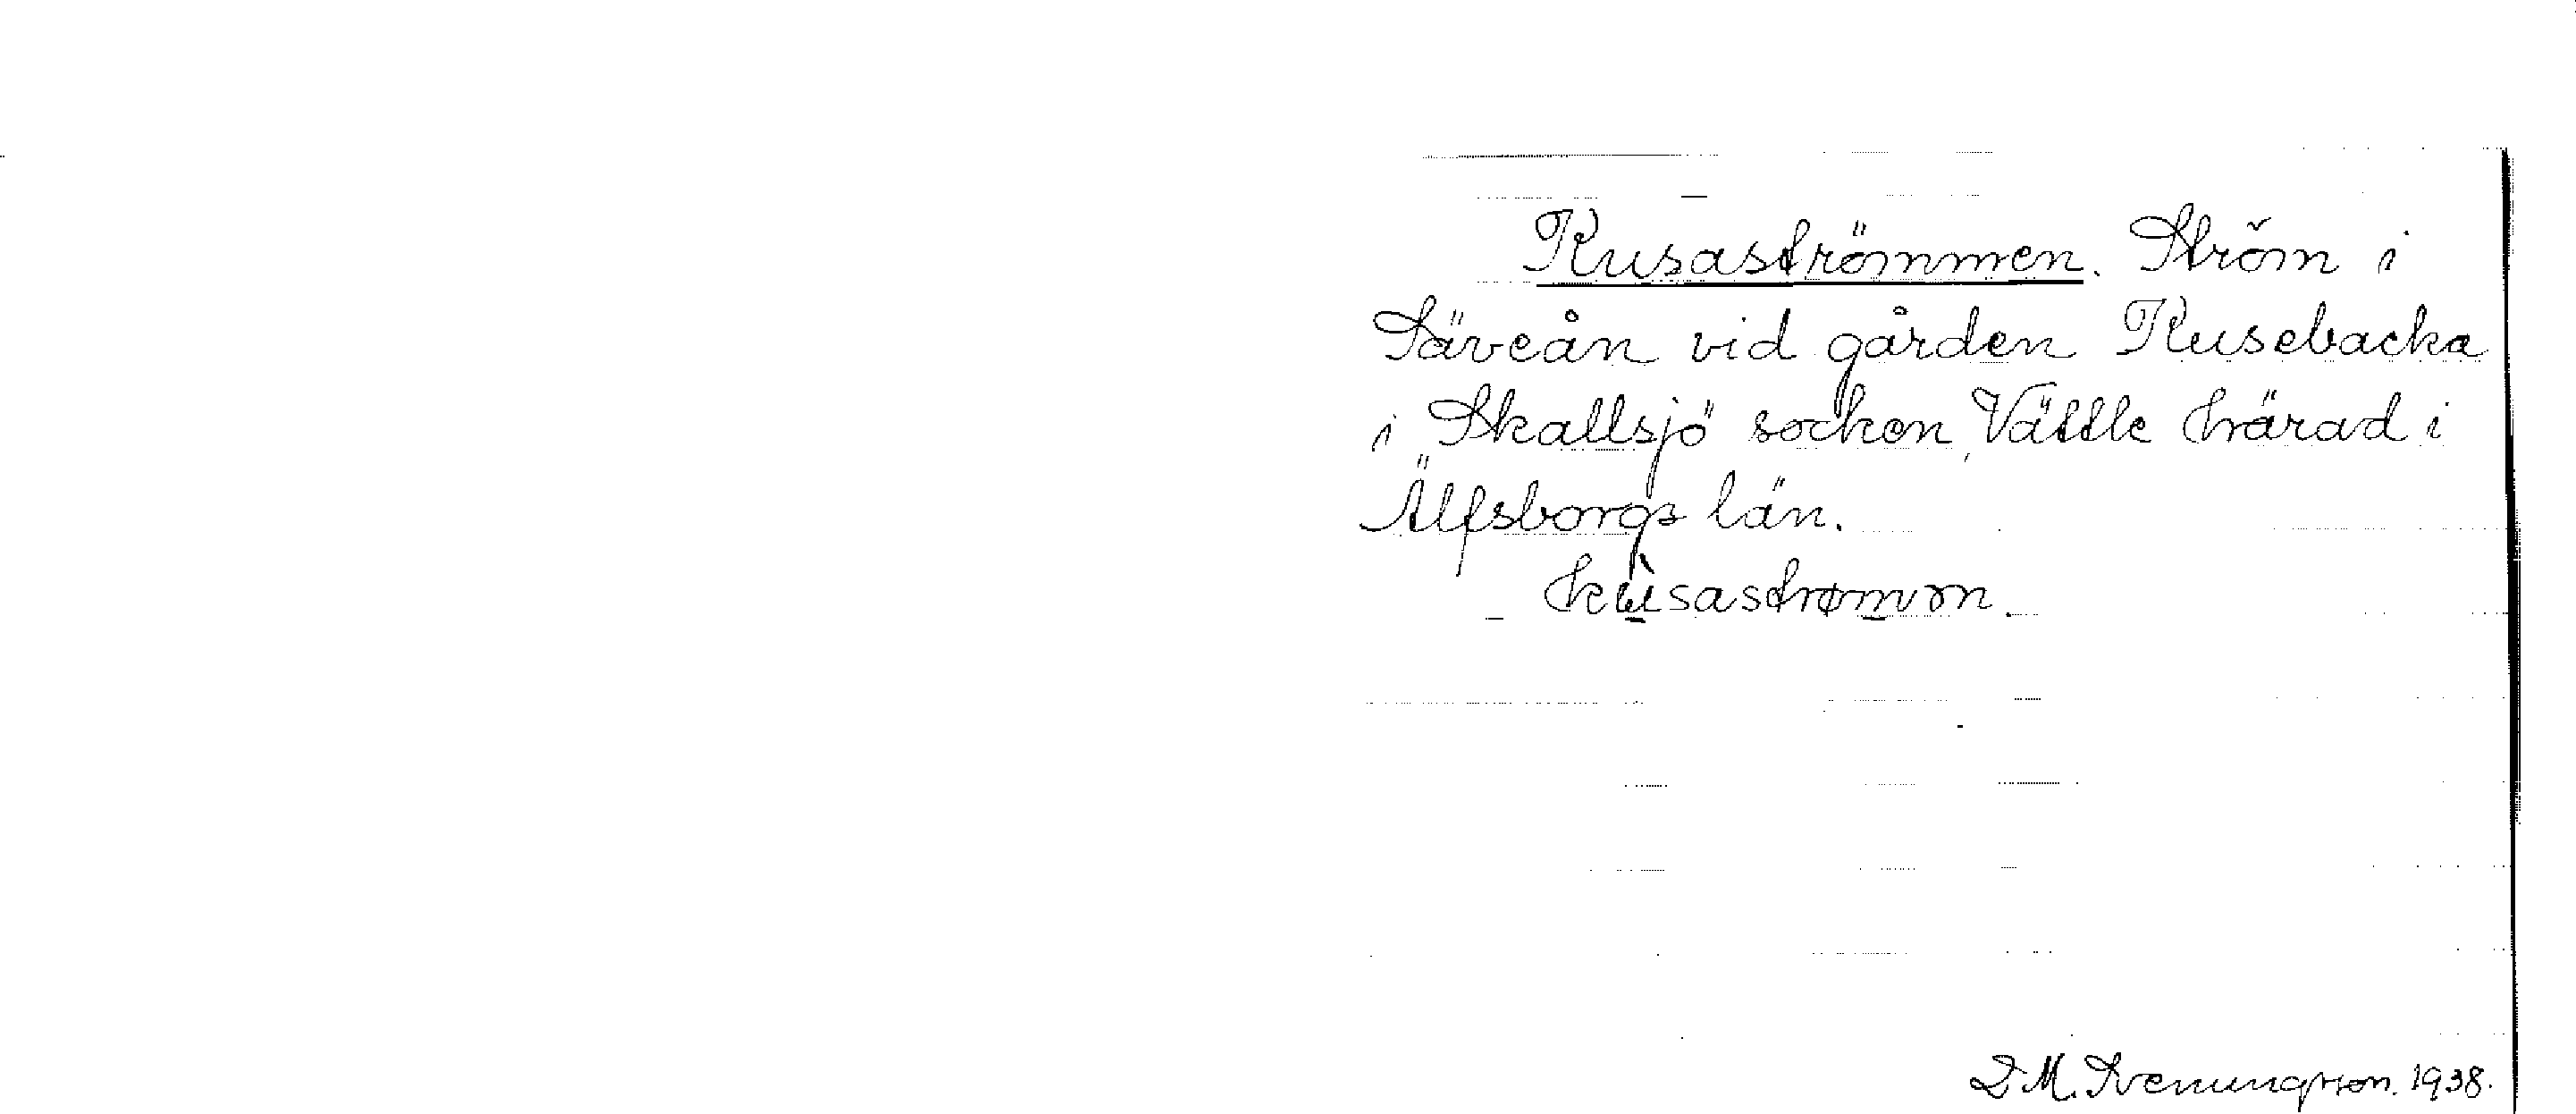 Kusaströmmen. Ström i
Säveån vid gården Kusebacka
i Skallsjö socken, Vättle härad i
Älfsborgs län.
kùsastrømmen.
D. M. Svenungsson. 1938.